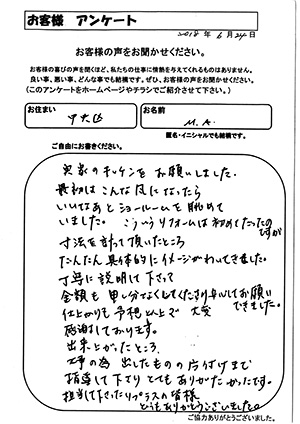 お客様 アンケート
2018年6月24日
お客様の声をお聞かせください。
お客様の喜びの声を聞くほど、私たちの仕事に情熱を与えてくれるものはありません。
良い事、悪い事、どんな事でも結構です。ぜひ、お客様の声をお聞かせください。
(このアンケートをホームページやチラシでご紹介させて下さい。)
お住まい
中央区
お名前
M.A
匿名・イニシャルでも結構です。
ご自由にお書きください。
実家のキッチンをお願いしました。
最初はこんな風になったら
いいなあとショールームを眺めて
いました。こういうリフォームは初めてだったのですが
寸法を計って頂いたところ
だんだん具体的にイメージがわいてきました。
丁寧に説明して下さって
金額も申し分なくしてくださり安心してお願いできました。
仕上がりも予想以上で大変
感謝しております。
出来上がったところ、
工事の為出したものの片付けまで
指導して下さりとてもありがたかったです。
担当して下さったリプラスの皆様
どうもありがとうございました。
ご協力ありがとうございました。